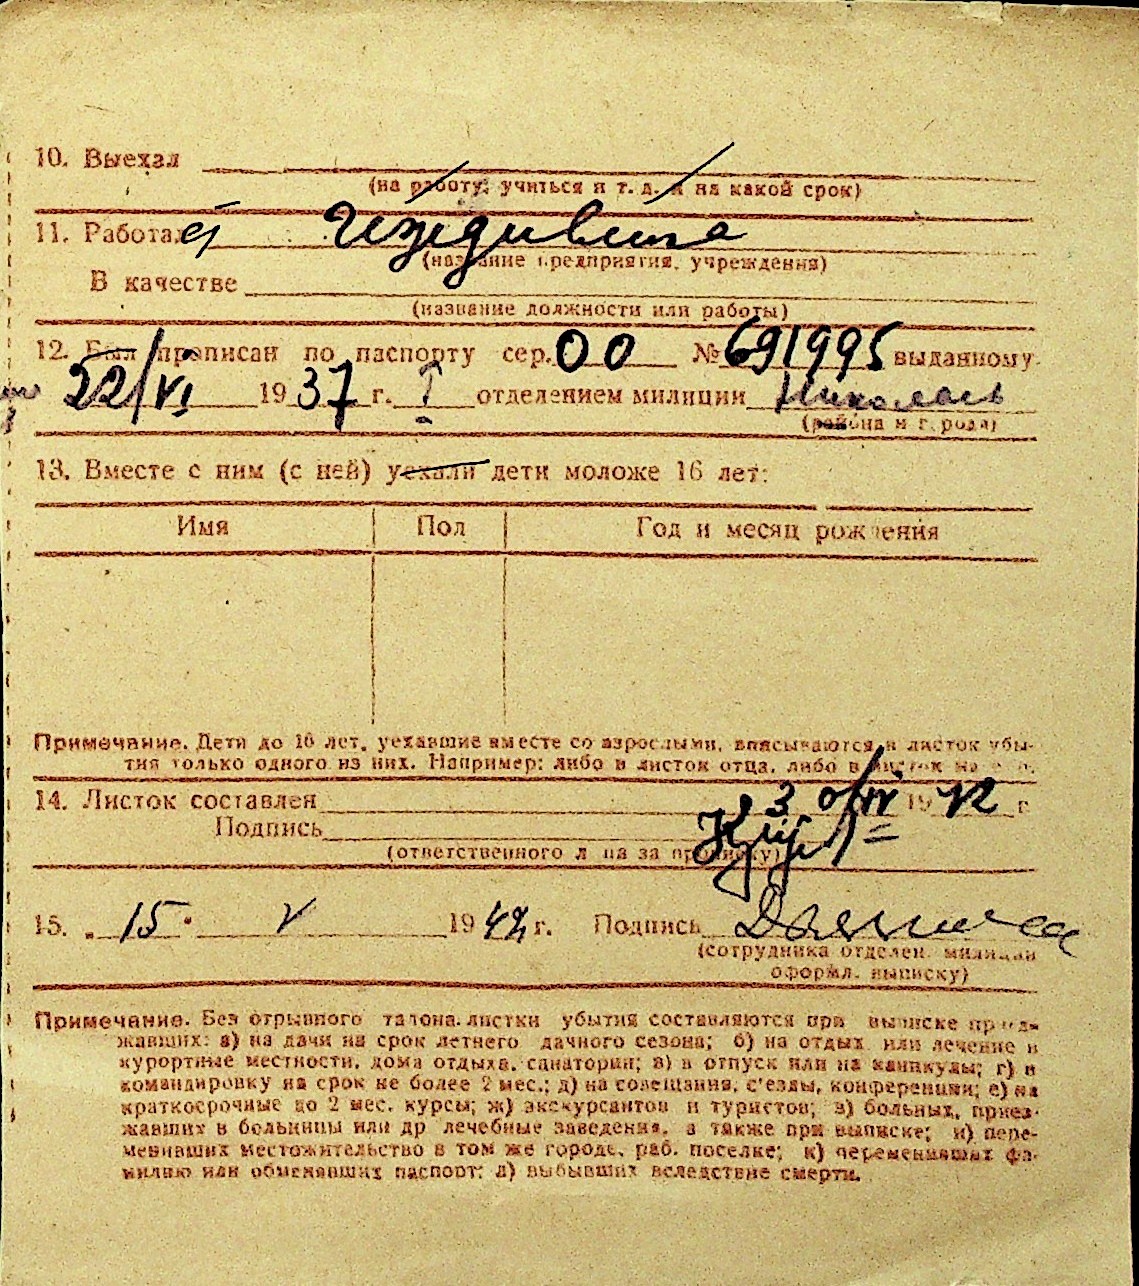 10. Выехал
(на работу, учиться и т. д. и на какой срок)
11. Работал Иждивенка
(название предприятия, учреждения)
В качестве
(название должности или работы)
12. Был прописан по паспорту сер. 00 № 691995 выданному
22/VI 1937 г. I отделением милиции
(района и города)
13. Вместе с ним (с ней) уехали дети моложе 16 лет:
Имя Пол Год и месяц рождения
Примечание. Дети до 16 лет, уехавшие вместе со взрослыми, вписываются в листок убы-
тия только одного из них. Например: либо в листок отца, либо в листок
14. Листок составлен 3 1942 г.
Подпись
(ответственного лица за прописку)
15. 15 V 1942 г. Подпись
(сотрудника отделен. милиции
оформл. выписку)
Примечание. Без отрывного талона листки убытия составляются при выписке приез-
жавших: а) на дачи на срок летнего дачного сезона; б) на отдых или лечение в
курортные местности, дома отдыха, санатории; в) в отпуск или на каникулы; г) в
командировку на срок не более 2 мес.; д) на совещания, с'езды, конференции; е) на
краткосрочные до 2 мес. курсы; ж) экскурсантов и туристов; з) больных, приез-
жавших в больницы или др лечебные заведения, а также при выписке; и) пере-
менивших местожительство в том же городе, раб. поселке; к) переменивших фа-
милию или обменявших паспорт; л) выбывших вследствие смерти.